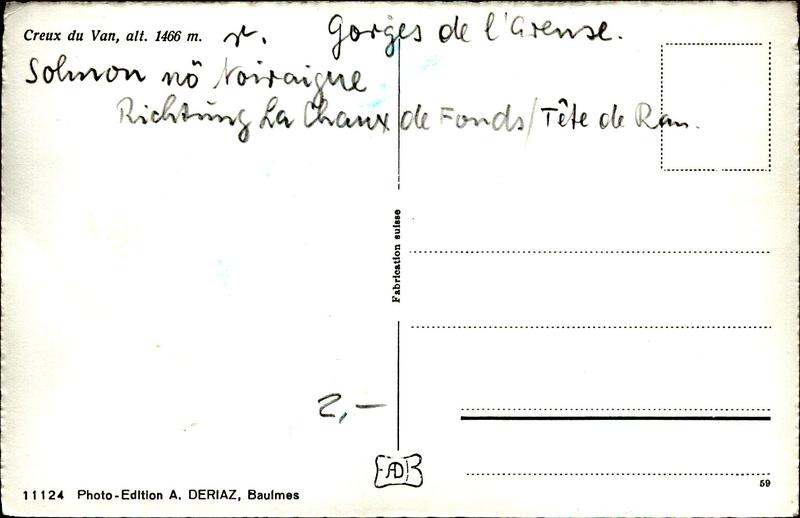 Creux du Van, alt. 1466 m. r. Gorges de l'Areuse.
Solmon nö Noiraigue
Richtung La Chaux de Fonds/Tête de Ran.
Fabrication suisse
2,—
AD
59
11124 Photo-Edition A. DERIAZ, Baulmes